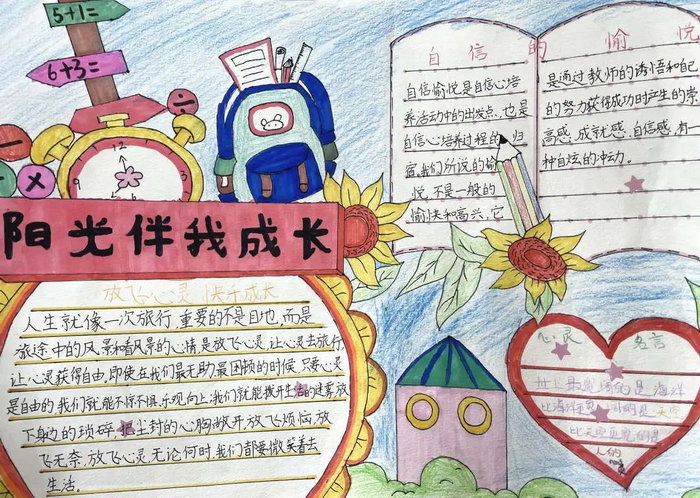 5+1=
6+3=
12
3
阳光伴我成长
放飞心灵 快乐成长
人生就像一次旅行,重要的不是目地,而是
旅途中的风景和看风景的心情是放飞心灵,让心灵去旅行
让心灵获得自由,即使在我们最无助、最困顿的时候,只要心灵
是自由的我们就能不惊不惧、乐观向上,我们就能拨开生活的迷雾放
下身边的琐碎,把尘封的心胸敞开,放飞烦恼,放
飞无奈,放飞心灵,无论何时,我们都要微笑着去
生活。
自信的愉悦
自信愉悦是自信心培
养活动中的出发点,也是
自信心培养过程的归
宿,我们所说的愉
悦,不是一般的
愉快和高兴,它
是通过教师的诱悟和自己
的努力获得成功时产生的崇
高感、成就感、自信感,有一
种自炫的冲动。
心灵 名言
世上最宽阔的是海洋
比海洋更宽阔的是天空
比天空更宽阔的是
人的